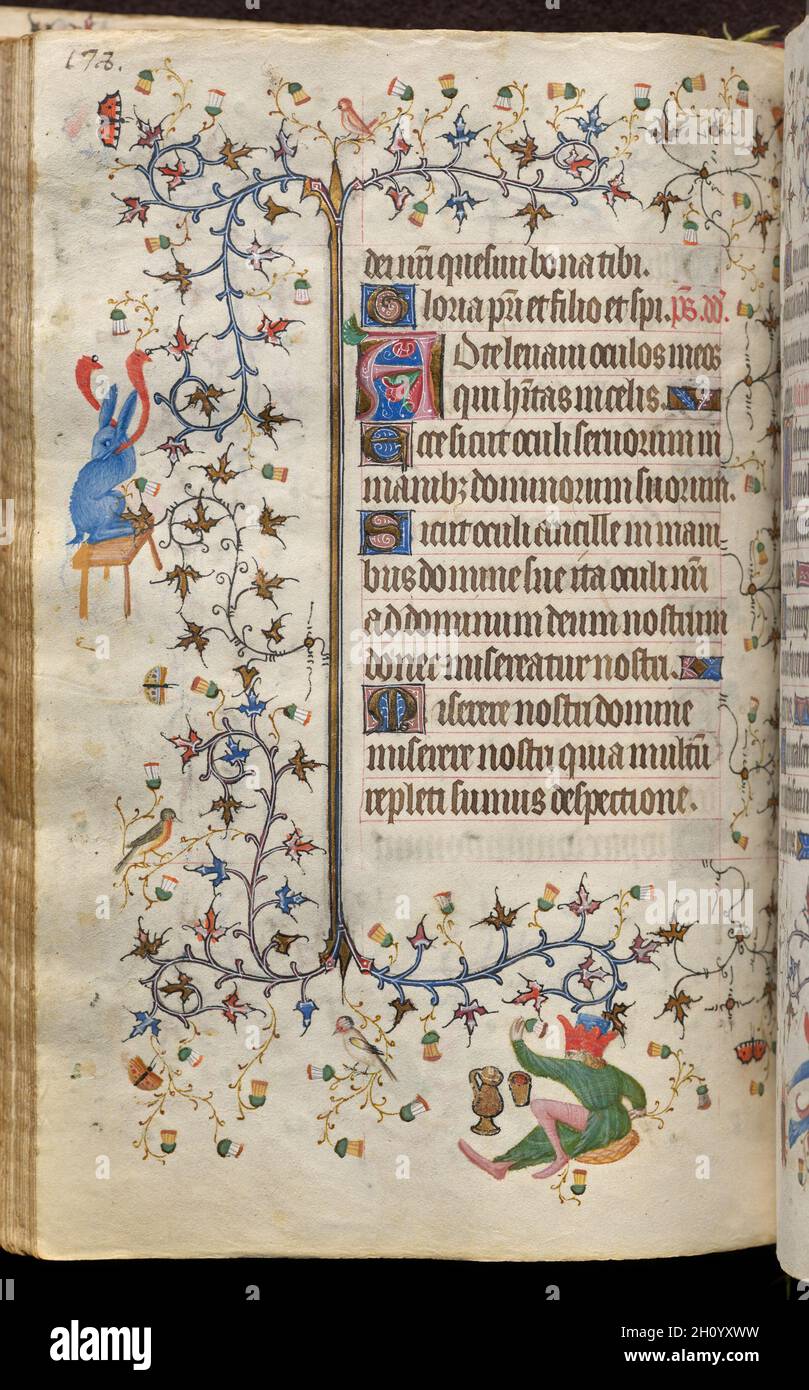 178.
dei nr̄i quesiui bona tibi.
Gloria pr̄i et filio et spi. ps̄. dd̄.
Ad te leuaui oculos meos
qui hītas in celis.
Ecce sicut oculi seruorum in
manibꝫ dominorum suorum.
Sicut oculi ancille in mani-
bus domine sue ita oculi nr̄i
ad dominum deum nostrum
donec misereatur nostri.
Miserere nostri domine
miserere nostri quia multū
repleti sumus despectione.
alamy
Image ID: 2H0YXWW
www.alamy.com